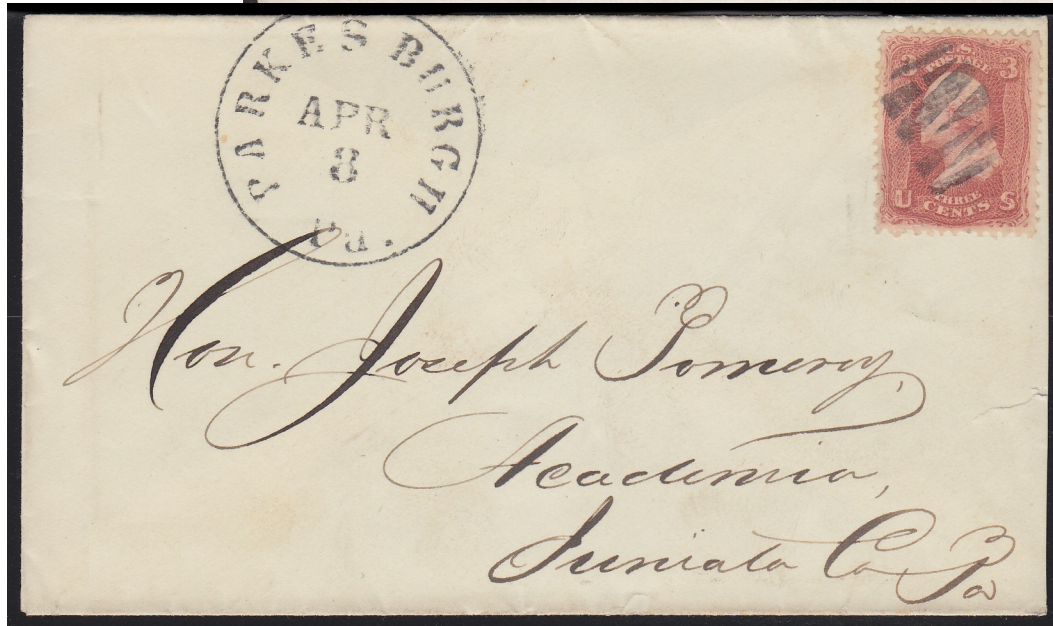 PARKESBURGH
APR
8
Pa.
U.S. 3
POSTAGE
U THREE S
CENTS
Hon. Joseph Pomeroy,
Academia,
Juniata Co Pa